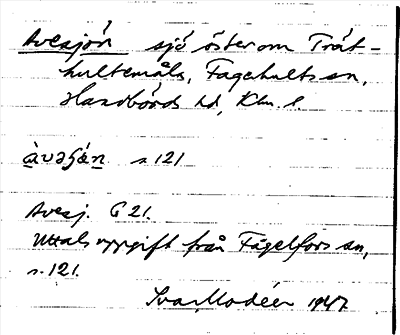 Avesjön sjö öster om Trät-
hultemåla, Fagerhults sn,
Handbörds hd, Klm. l.
àvəʃǿn s. 121
Avesj. G 21.
Uttalsuppgift från Fågelfors sn,
s. 121.
Ivar Modéer 1947